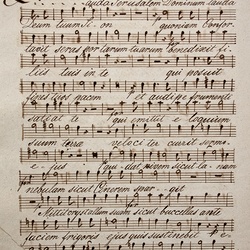 Lauda Jerusalem Dominum lauda
Deum tuum Sion quoniam confor
tavit seras portarum tuarum benedixit fi
liis tuis in te qui posuit
fines tuos pacem et adipe frumenti
satiat te qui emittit eloquium
suum terra velociter currit sermo
ejus qui dat nivem sicut lanam
nebulam sicut cinerem spargit
Mittit crystallum suam sicut buccellas ante
faciem frigoris ejus quis sustinebit